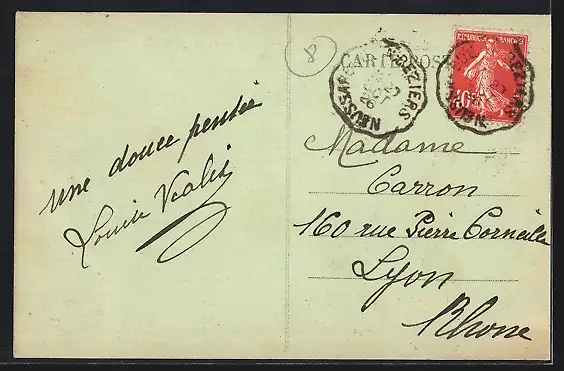 8
CARTE POSTALE
REPUBLIQUE FRANÇAISE
10c
NEUSSARGUES A BEZIERS
une douce pensée
Louise
Madame
Carron
160 rue Pierre Corneille
Lyon
Rhone